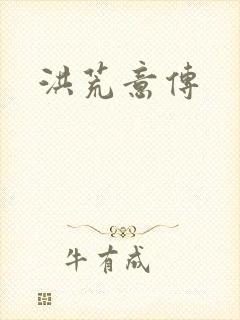 洪荒意傳
牛有成